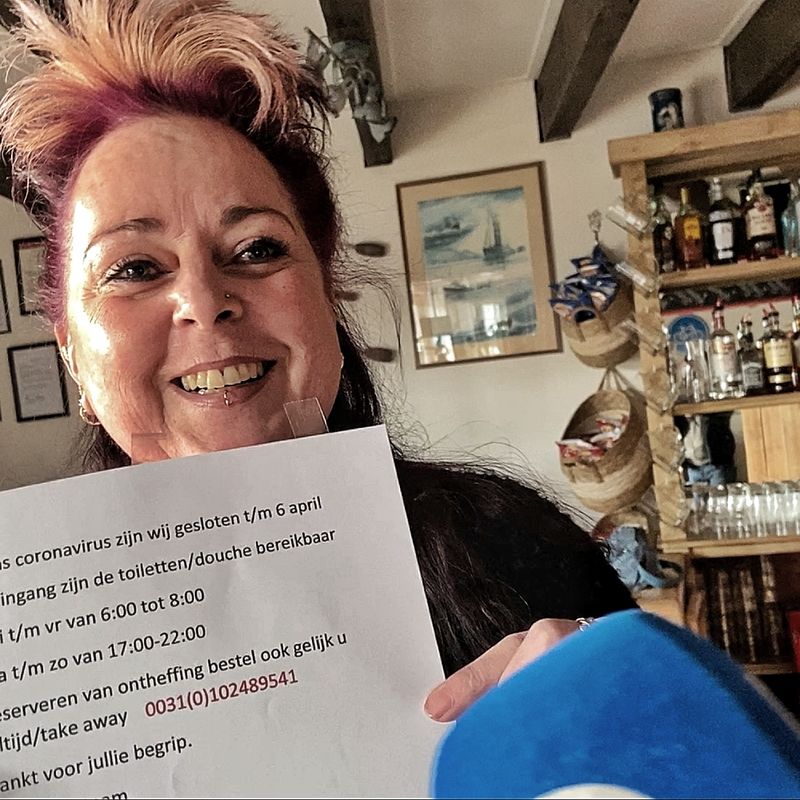 coronavirus zijn wij gesloten t/m 6 april
ingang zijn de toiletten/douche bereikbaar
t/m vr van 6:00 tot 8:00
t/m zo van 17:00-22:00
van ontheffing bestel ook gelijk u
away 0031(0)102489541
voor jullie begrip.